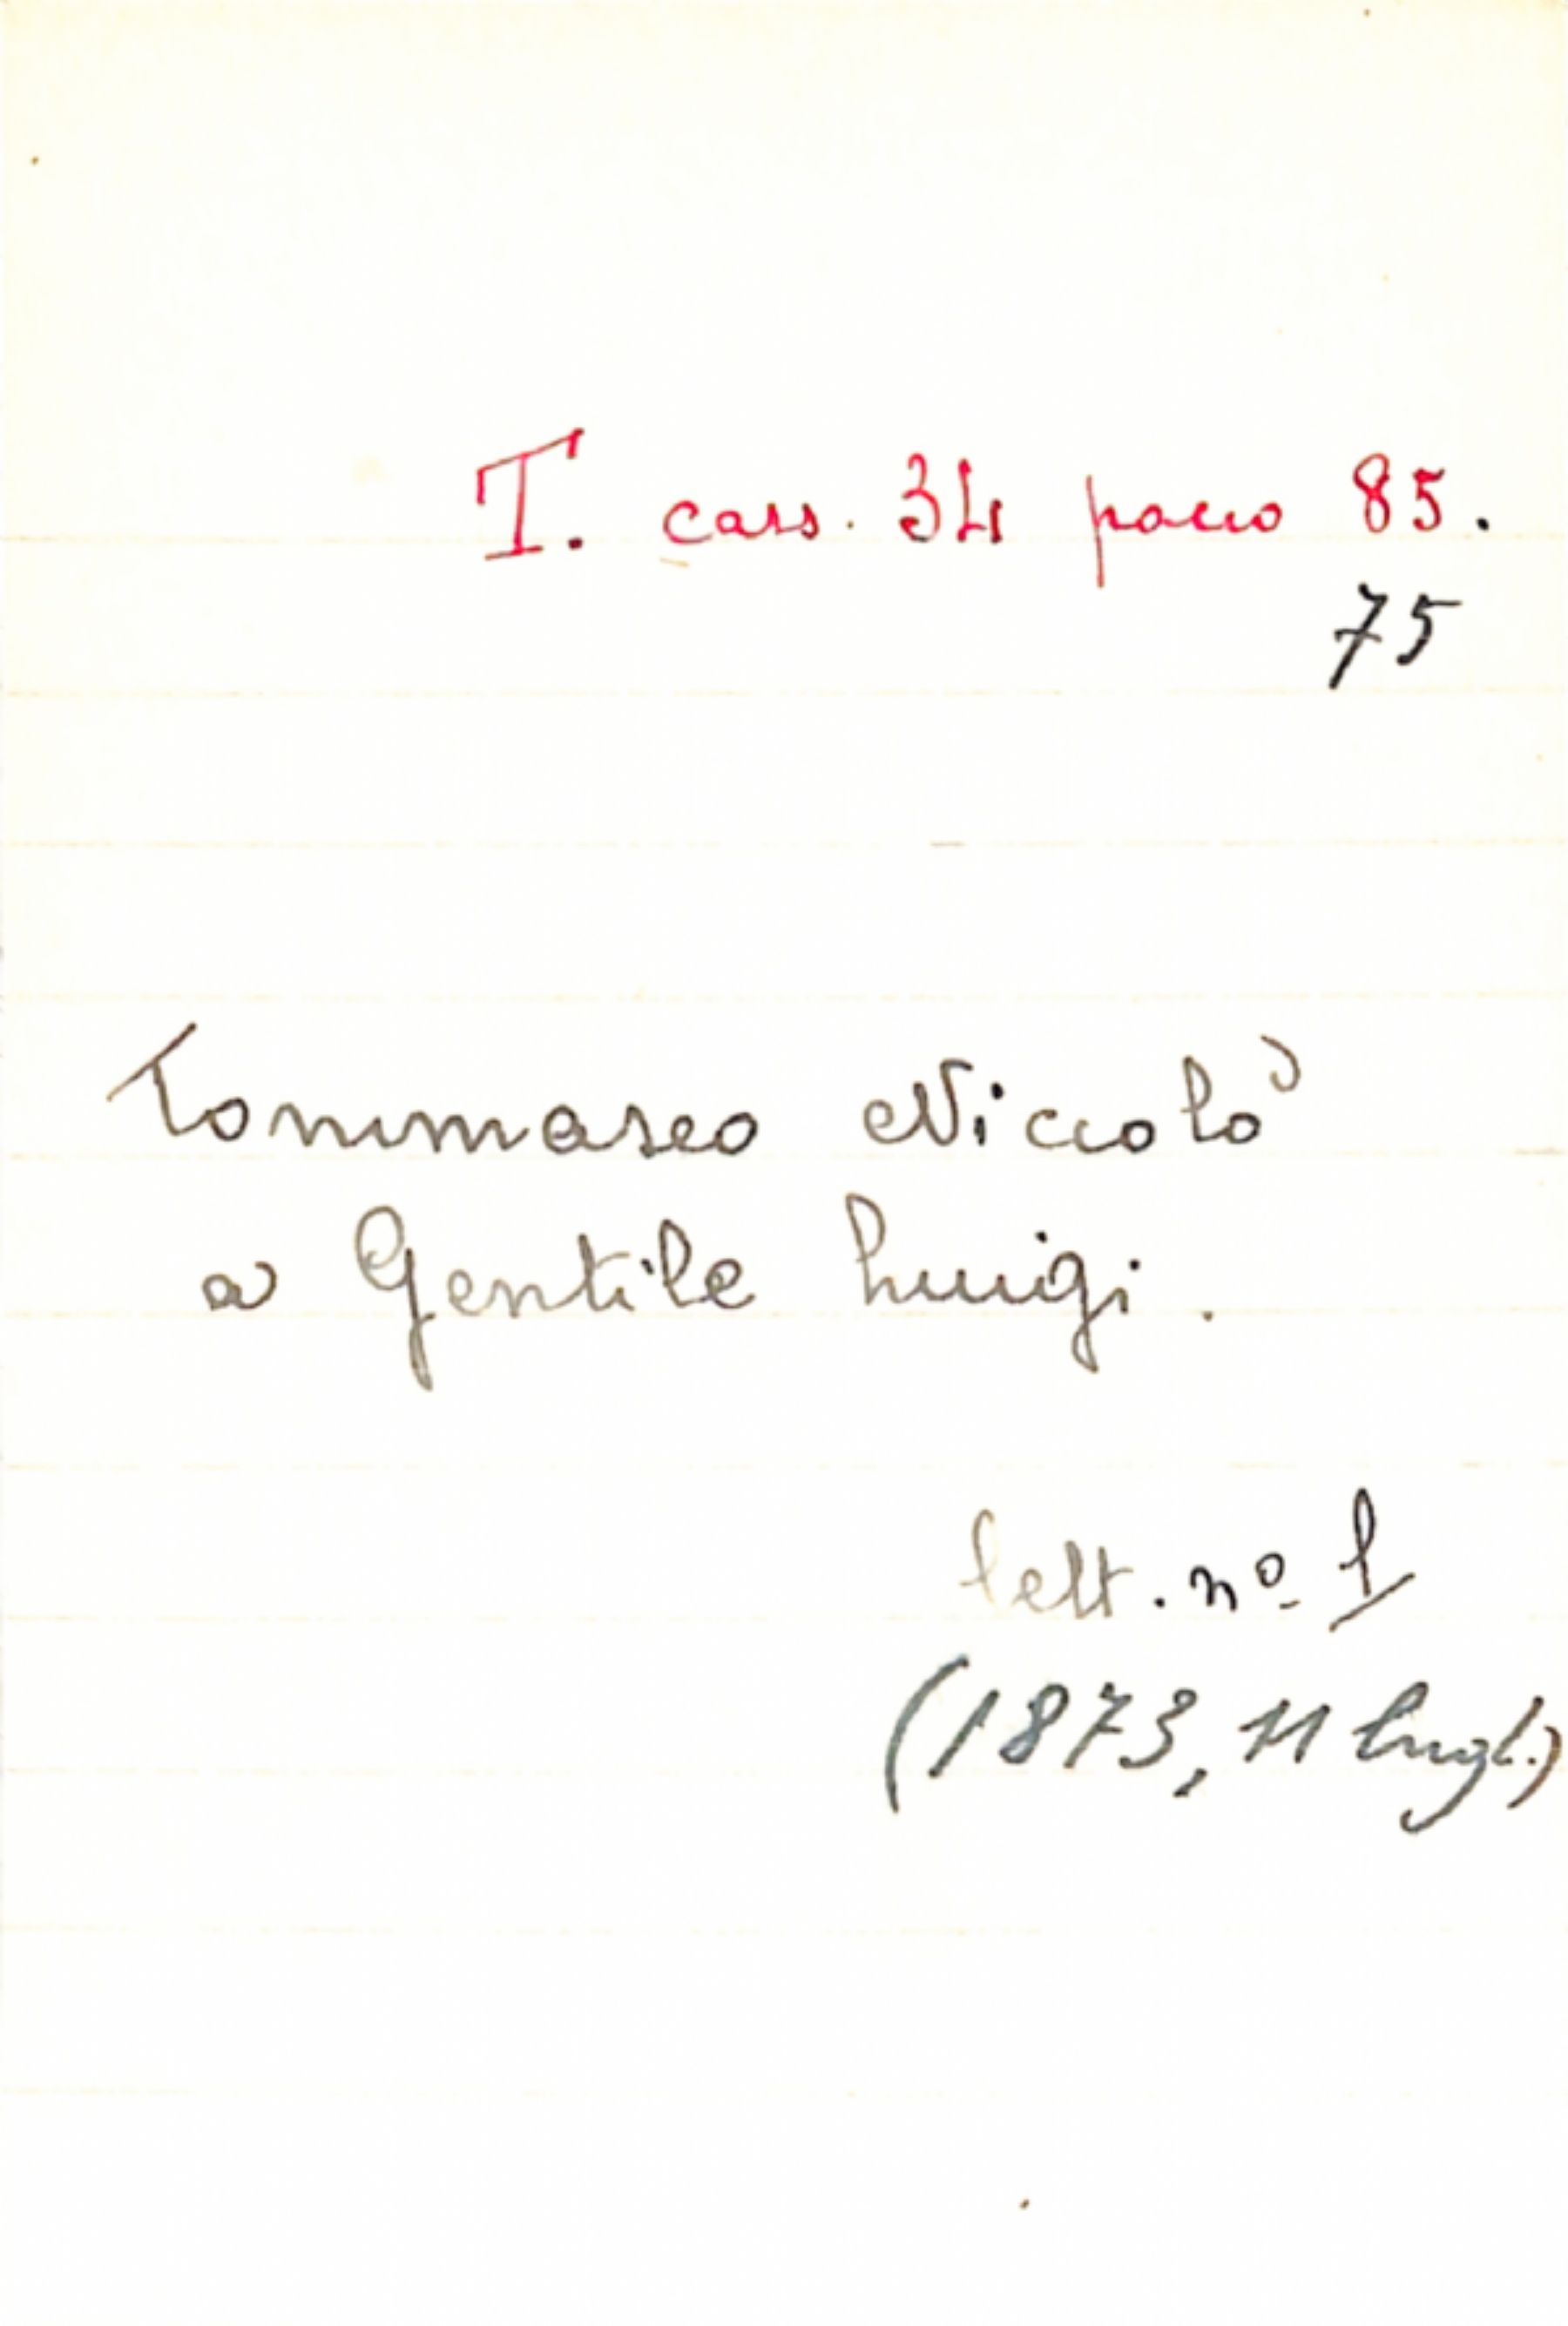 T. cass. 34 pacco 85.
75
Tommaseo Niccolò
a Gentile Luigi.
lett. nº 1
(1873, 11 lugl.)